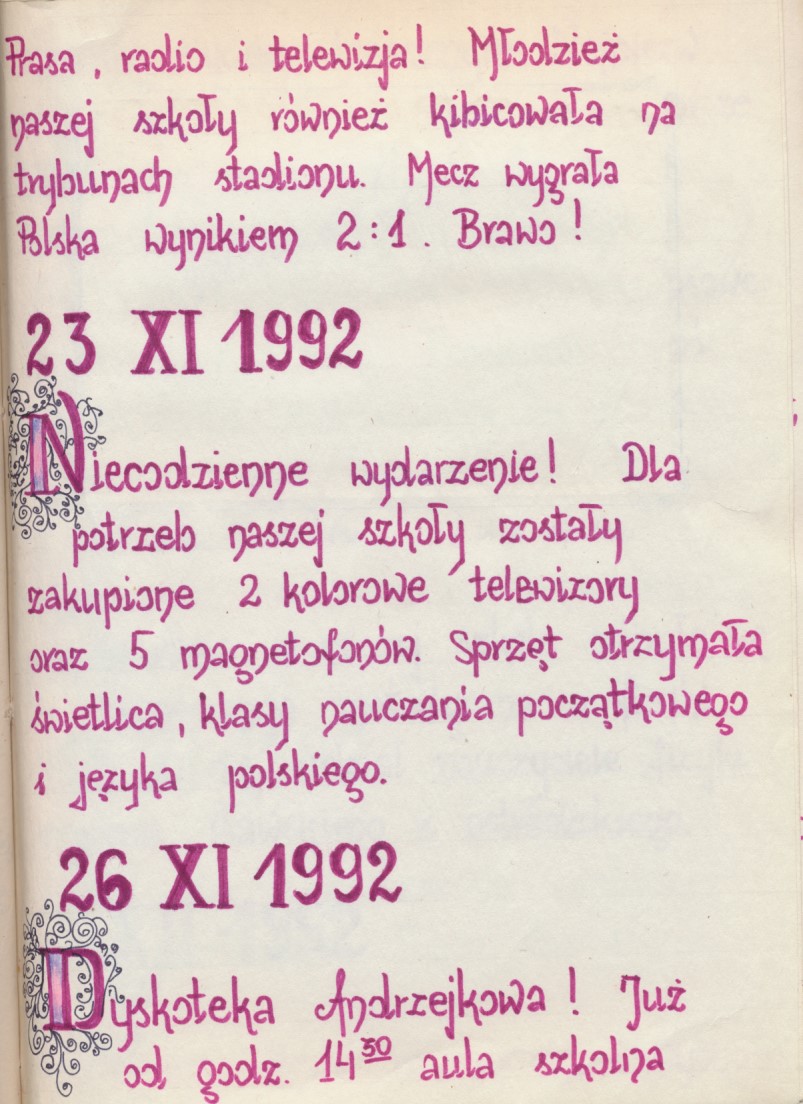 Prasa, radio i telewizja! Młodzież
naszej szkoły również kibicowała na
trybunach stadionu. Mecz wygrała
Polska wynikiem 2:1. Brawo!
23 XI 1992
Niecodzienne wydarzenie! Dla
potrzeb naszej szkoły zostały
zakupione 2 kolorowe telewizory
oraz 5 magnetofonów. Sprzęt otrzymała
świetlica, klasy nauczania początkowego
i języka polskiego.
26 XI 1992
Dyskoteka Andrzejkowa! Już
od godz. 14³⁰ aula szkolna